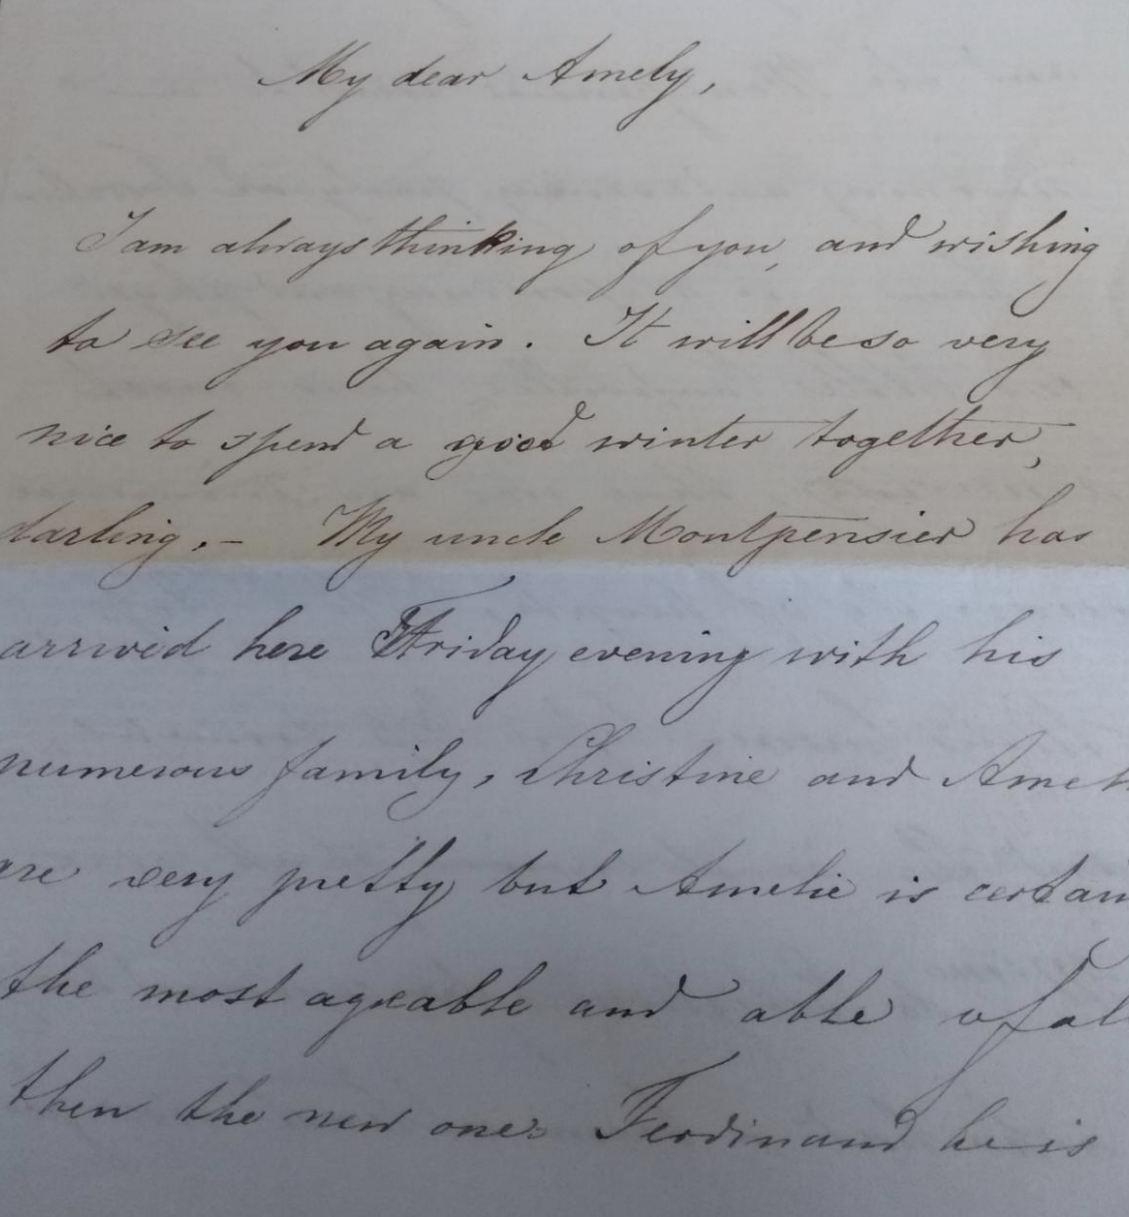 My dear Amely,
I am always thinking of you, and wishing
to see you again. It will be so very
nice to spend a good winter together,
darling. - My uncle Montpensier has
arrived here Friday evening with his
numerous family, Christine and Ameli
are very pretty but Amelie is certain
the most agreable and able of al
then the new one: Ferdinand he is